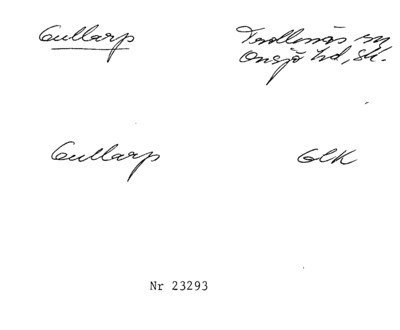 Gullarp
Trollenäs sn
Onsjö hd, Sk.
Gullarp
GLK
Nr 23293